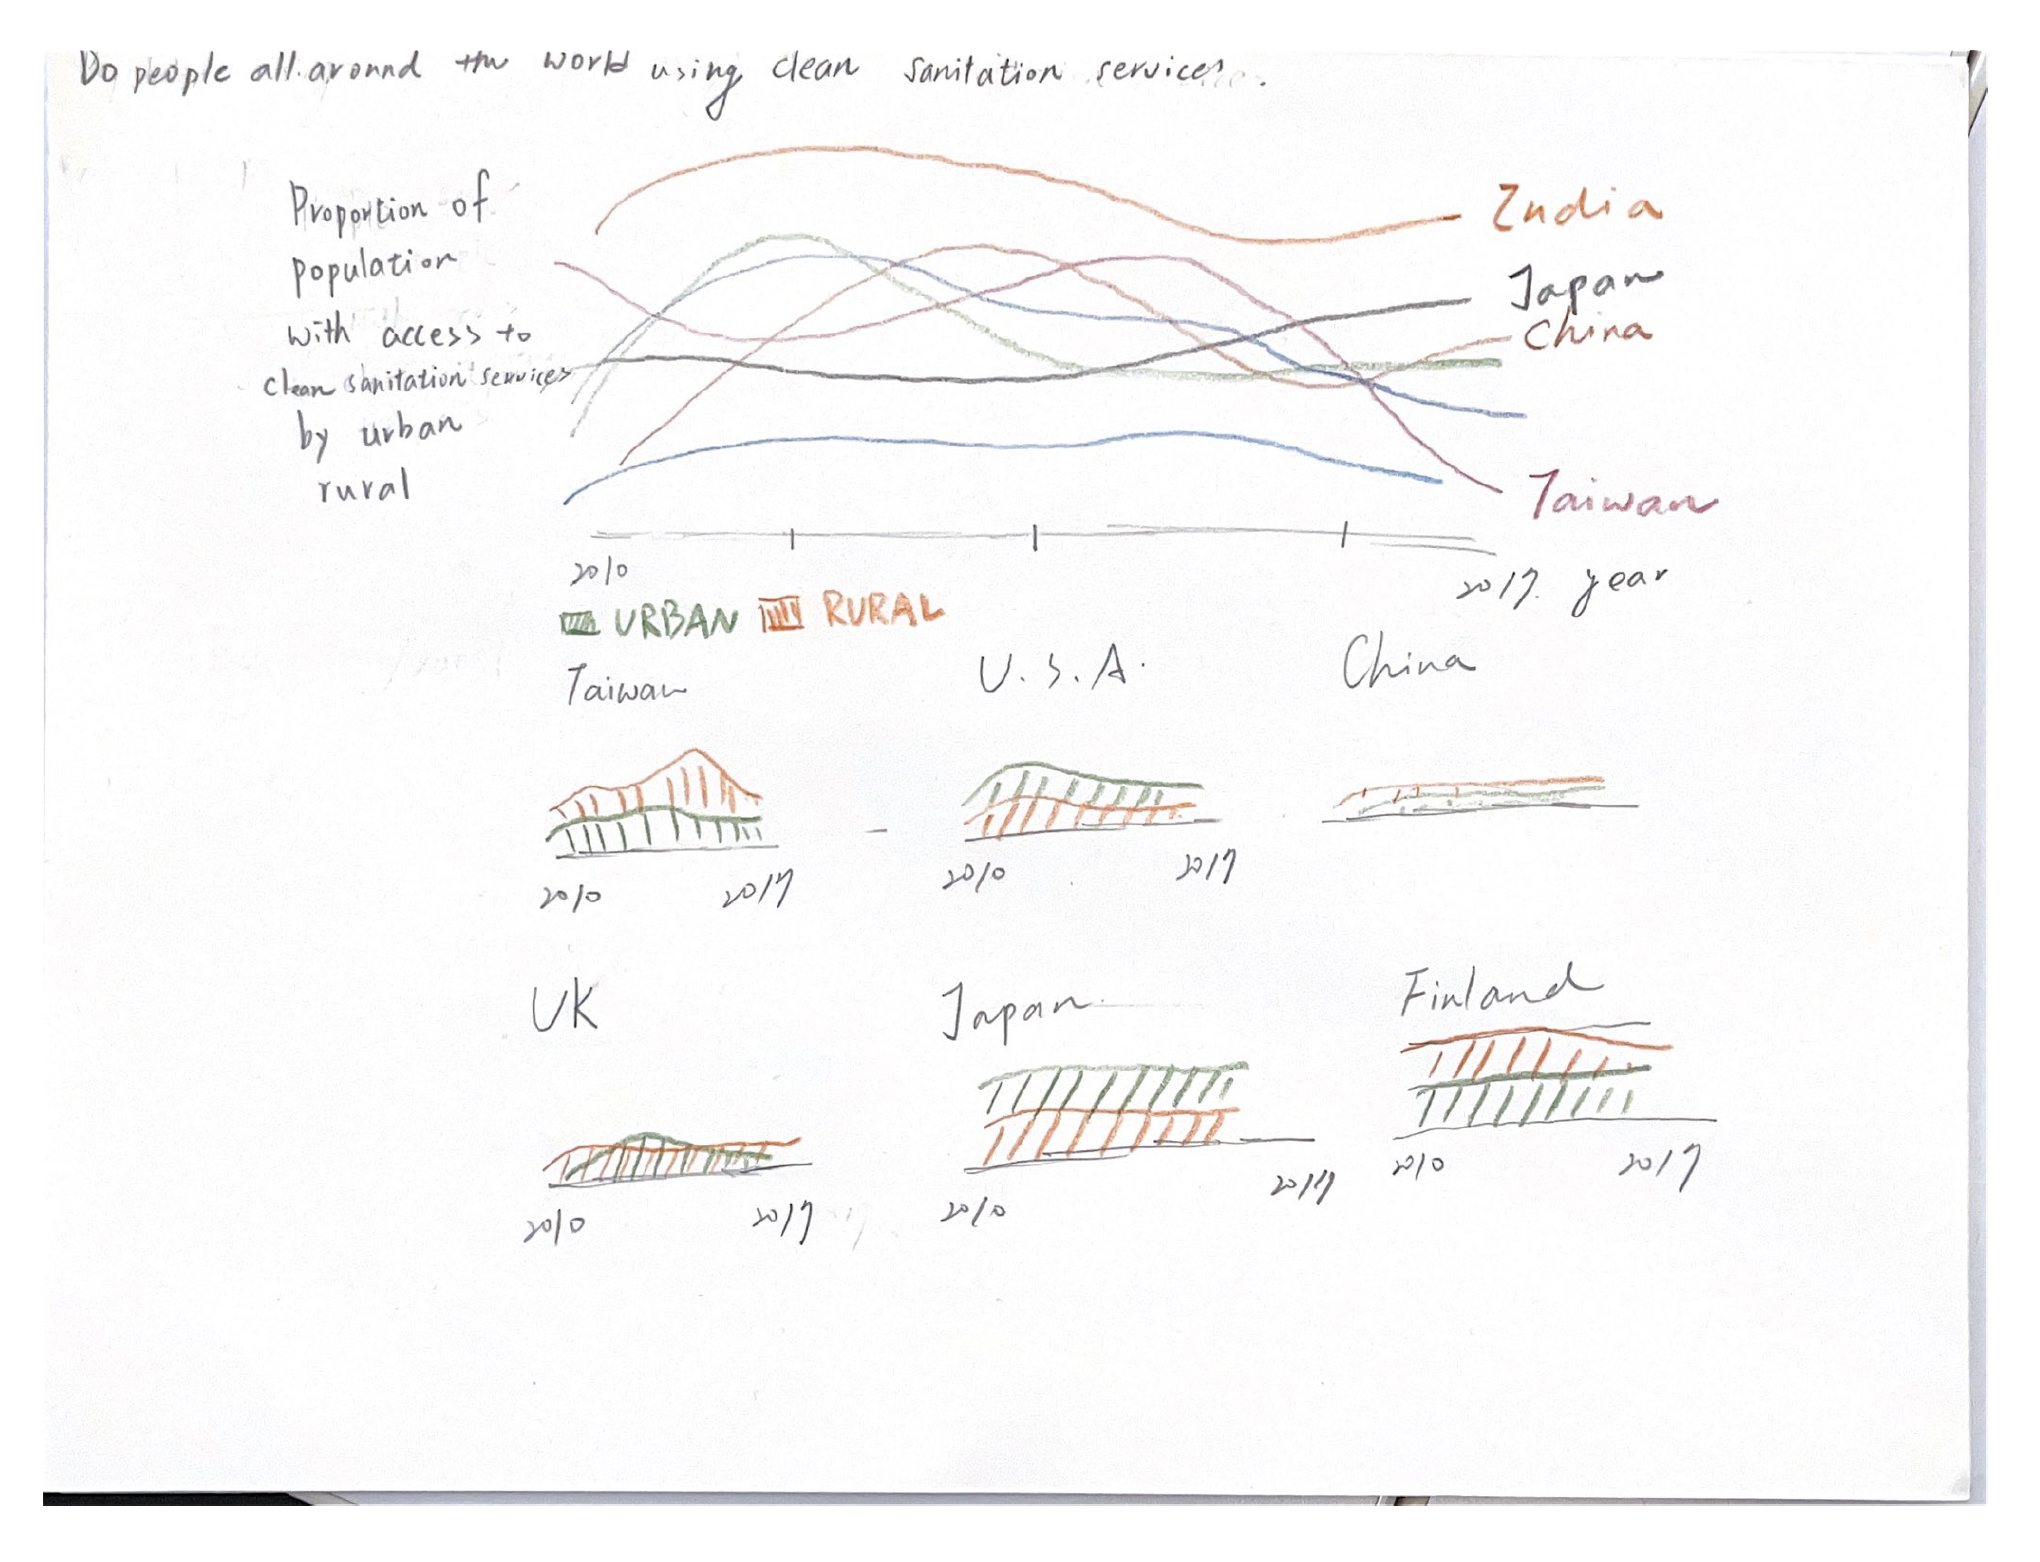 Do people all around the world using clean sanitation services.
Proportion of
population
with access to
clean sanitation services
by urban
rural
India
Japan
China
Taiwan
2010
2017. year
URBAN RURAL
Taiwan
U.S.A.
China
2010
2017
2010
2017
UK
Japan
Finland
2010
2017
2010
2017
2010
2017